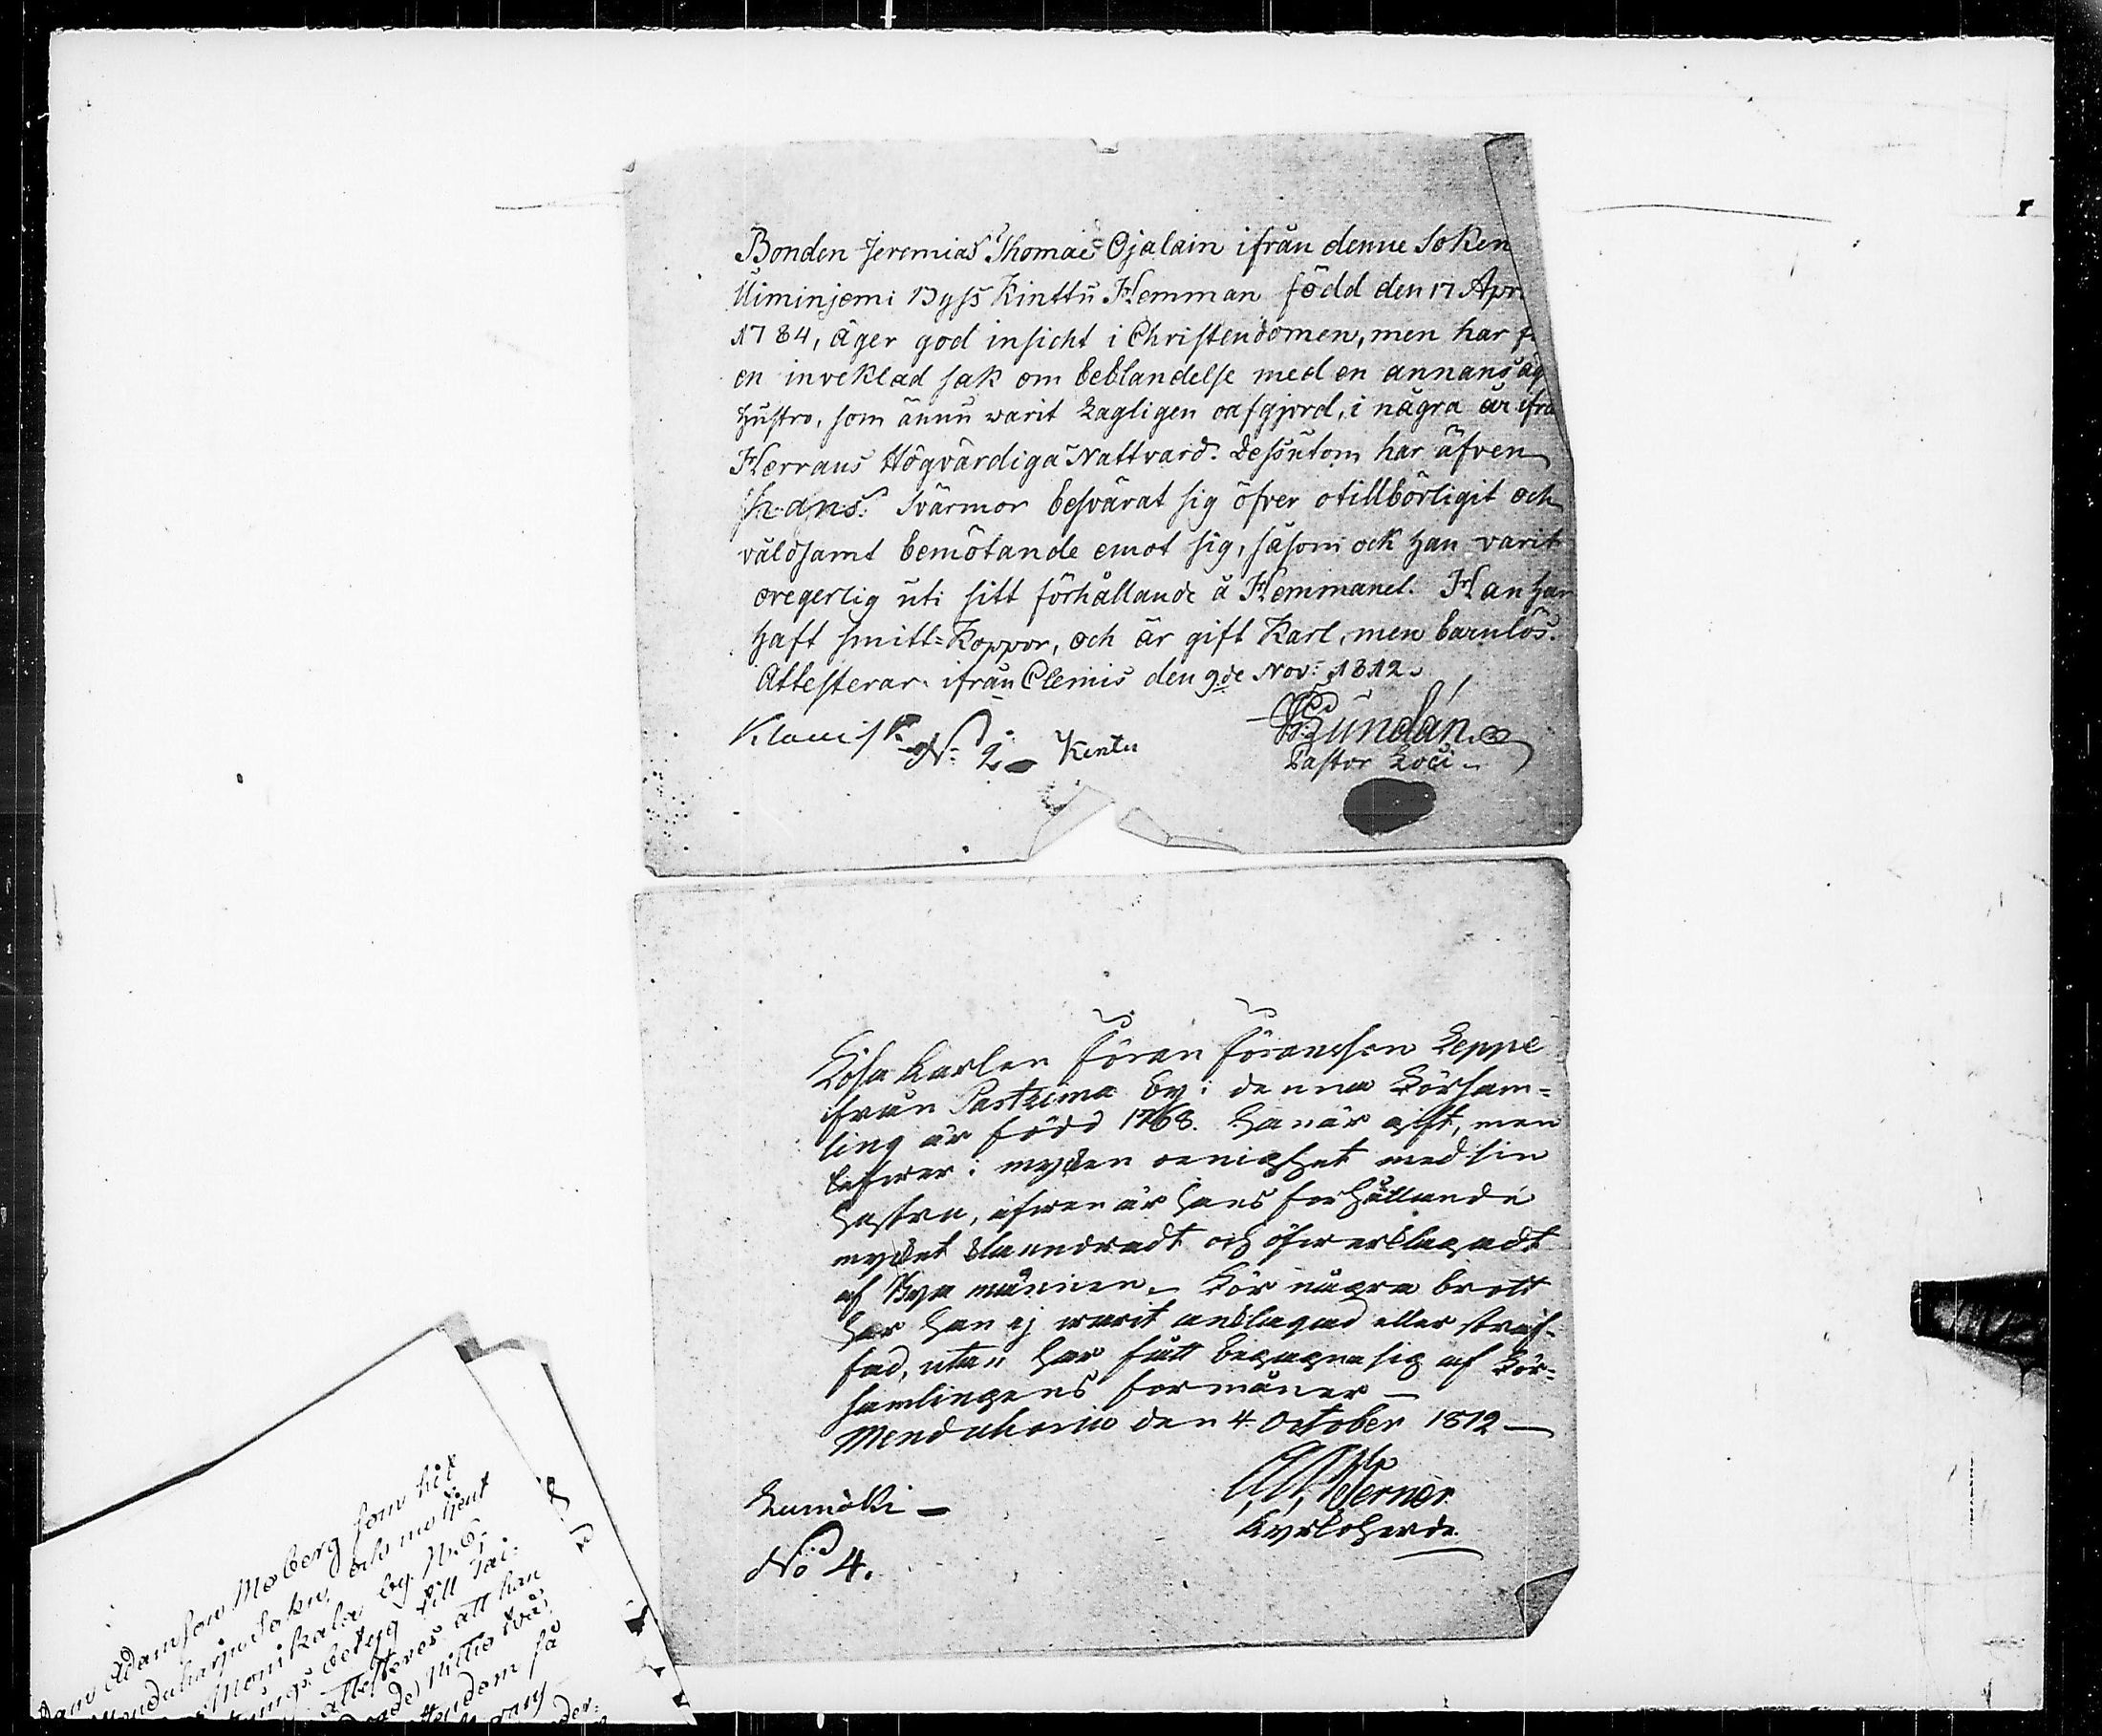 Bonden Jeremias Thomae Ojalain ifrån denne Soken
Uiminjemi Byss Kinttu Hemman född den 17 Apr
1784, äger god insicht i Christendomen, men har f
en inveklad sak om beblandelse med en annans äg
Hustro, som ännu warit Lagligen oafgjord, i några år ifrå
Herrans Högvärdiga Nattvard. Dessutom har äfven
hans Svärmor besvärat sig öfver otillbörligit och
våldsamt bemötande emot sig, såsom ock han varit
oregerlig uti sitt förhållande å Hemmanet. Han har
haft smitt-Koppor, och är gift Karl, men barnlös.
Attesterar ifrån Clemis den 9de Nov: 1812.
Pastor Loci
No 2 Kintu
Lösa Karlen Jöran Jöransson Leppe
ifrån Pastuima by i denna Försam-
ling är född 1768. Han är gift, men
lefwer i mycken oenighet med sin
hustru, äfwen är hans förhållande
mycket klandradt och öfwerklagadt
af Bya männen. För några brott
har han ej warit anklagad eller straf-
fad, utan har fått begagna sig af För-
samlingens förmåner —
Menduharju den 4 October 1812 —
Werner
Kyrkoherde.
Lumäki —
No 4.
Adamson Moberg som hit
Menduharju Sokn, och med tjent
Monikala by. N:6.
betyg till Tai-
attesteres att han
Nittio två
få